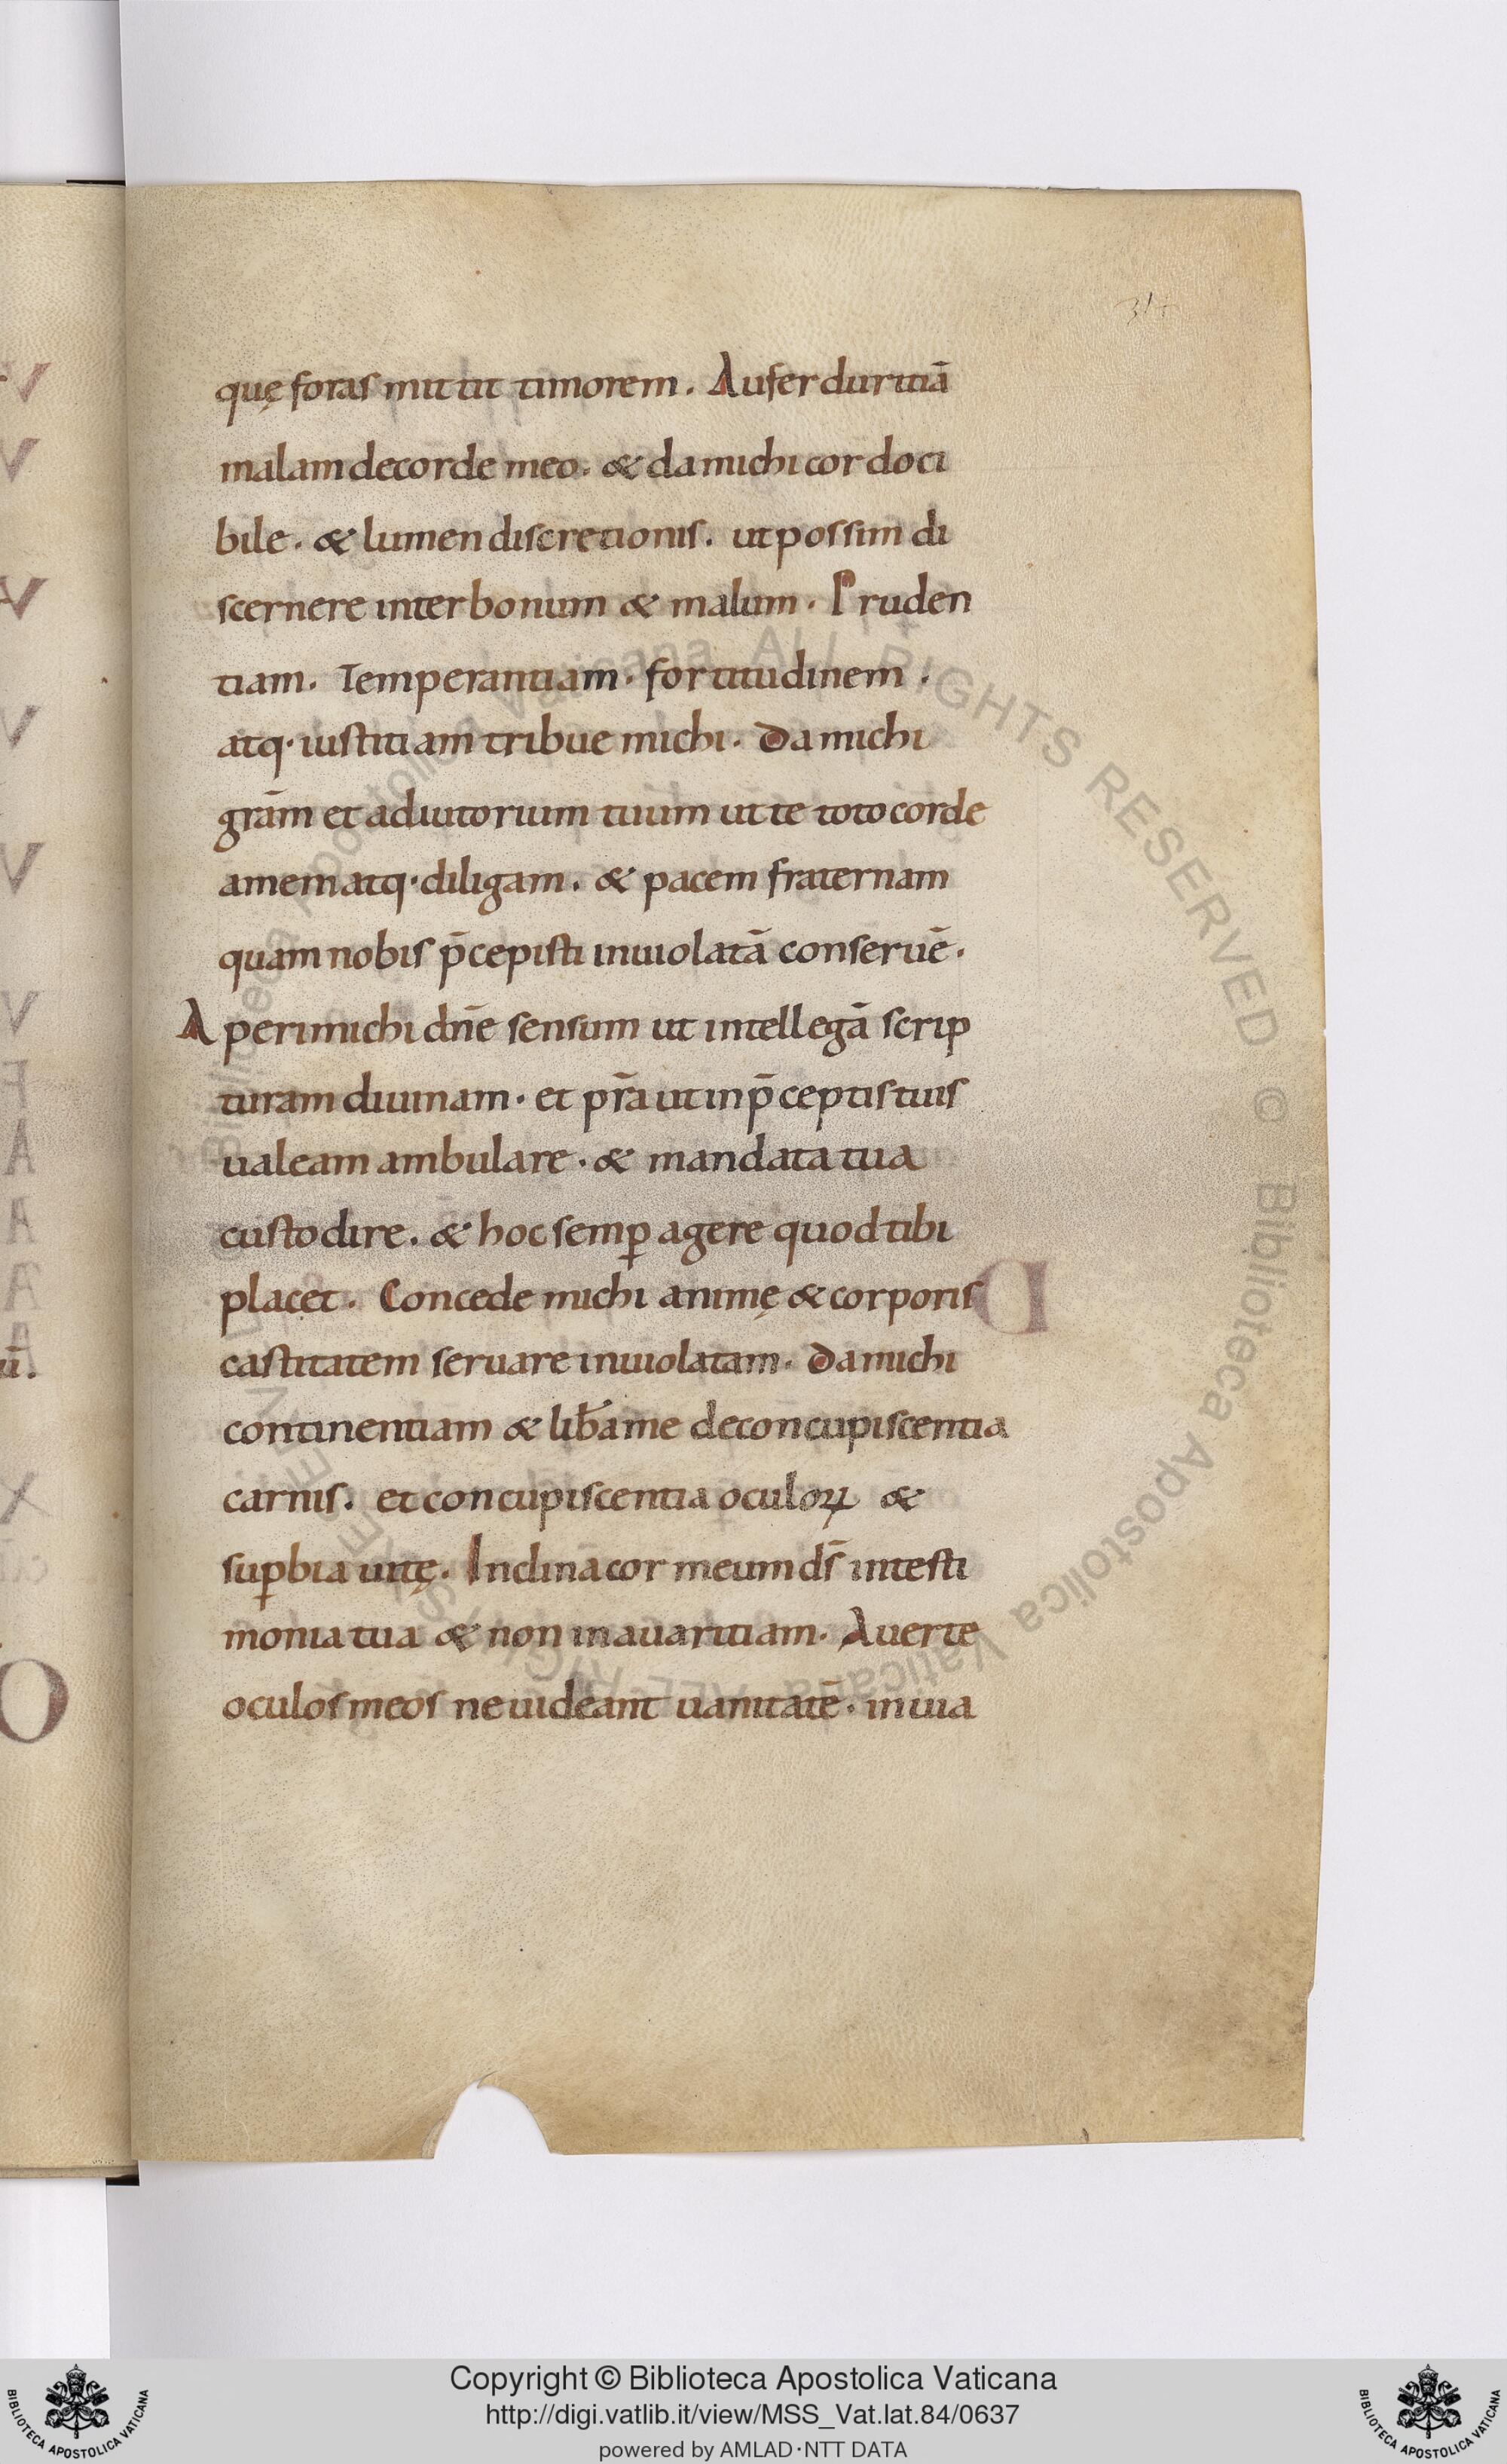 317
quę foras mittit timorem. Aufer duritiā
malam de corde meo. & da michi cor doci
bile. & lumen discretionis. ut possim di
scernere inter bonum & malum. Pruden
tiam. Temperantiam. fortitudinem.
atq· iustitiam tribue michi. Da michi
grām et adiutorium tuum ut te toto corde
amem atq· diligam. & pacem fraternam
quam nobis p̄cepisti inuiolatā conseruē.
Aperi michi dn̄e sensum ut intellegā scrip
turam diuinam. et pr̄a ut in p̄ceptis tuis
ualeam ambulare. & mandata tua
custodire. & hoc semꝑ agere quod tibi
placet. Concede michi animę & corporis
castitatem seruare inuiolatam. Da michi
continentiam & lib̄a me de concupiscentia
carnis. et concupiscentia oculoꝝ &
suꝑbia uitę. Inclina cor meum ds̄ in testi
monia tua & non in auaritiam. Auerte
oculos meos ne uideant uanitatē. in uia
Biblioteca Apostolica Vaticana ALL RIGHTS RESERVED © Biblioteca Apostolica Vaticana
Copyright © Biblioteca Apostolica Vaticana
http://digi.vatlib.it/view/MSS_Vat.lat.84/0637
powered by AMLAD·NTT DATA
BIBLIOTECA APOSTOLICA VATICANA
BIBLIOTECA APOSTOLICA VATICANA